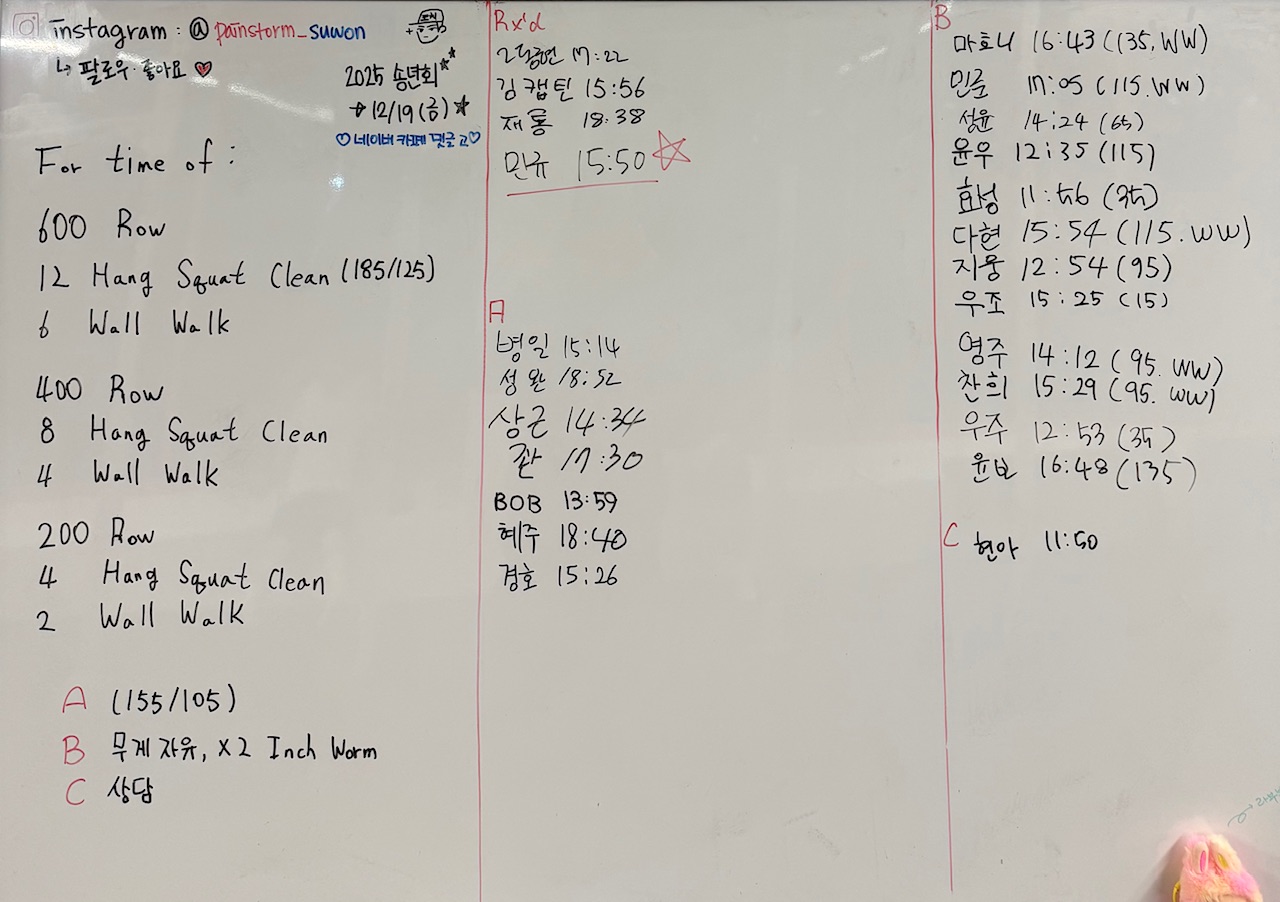 instagram : @painstorm_suwon
↳ 팔로우·좋아요 ♥
2025 송년회
→ 12/19(금) ★
♡네이버 카페 댓글 고♡
For time of :
600 Row
12 Hang Squat Clean (185/125)
6 Wall Walk
400 Row
8 Hang Squat Clean
4 Wall Walk
200 Row
4 Hang Squat Clean
2 Wall Walk
A (155/105)
B 무게 자유, X2 Inch Worm
C 상담
Rx'd
17:22
김캡틴 15:56
재롱 18:38
민규 15:50 ☆
A
병일 15:14
성완 18:52
상근 14:34
관 17:30
BOB 13:59
혜주 18:40
경호 15:26
B
마호니 16:43 (135, WW)
민준 17:05 (115. WW)
성윤 14:24 (65)
윤우 12:35 (115)
효성 11:56 (35)
다현 15:54 (115. WW)
지웅 12:54 (95)
우조 15:25 (15)
영주 14:12 (95. WW)
찬희 15:29 (95. WW)
우주 12:53 (35)
윤보 16:48 (135)
C
현아 11:50